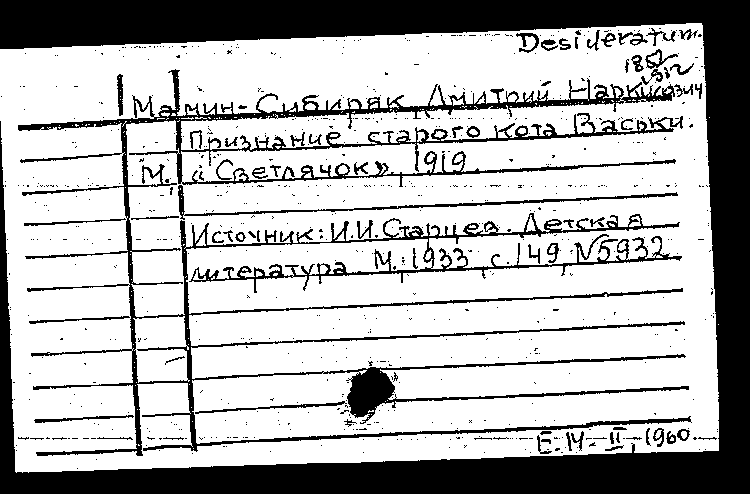 Desideratum.
1852
1912
Мамин-Сибиряк, Дмитрий Наркисович
Признание старого кота Васьки.
М., „Светлячок», 1919.
Источник: И.И. Старцев. Детская
литература. М., 1933, с. 149, №5932
Е.М.-II, 1960.